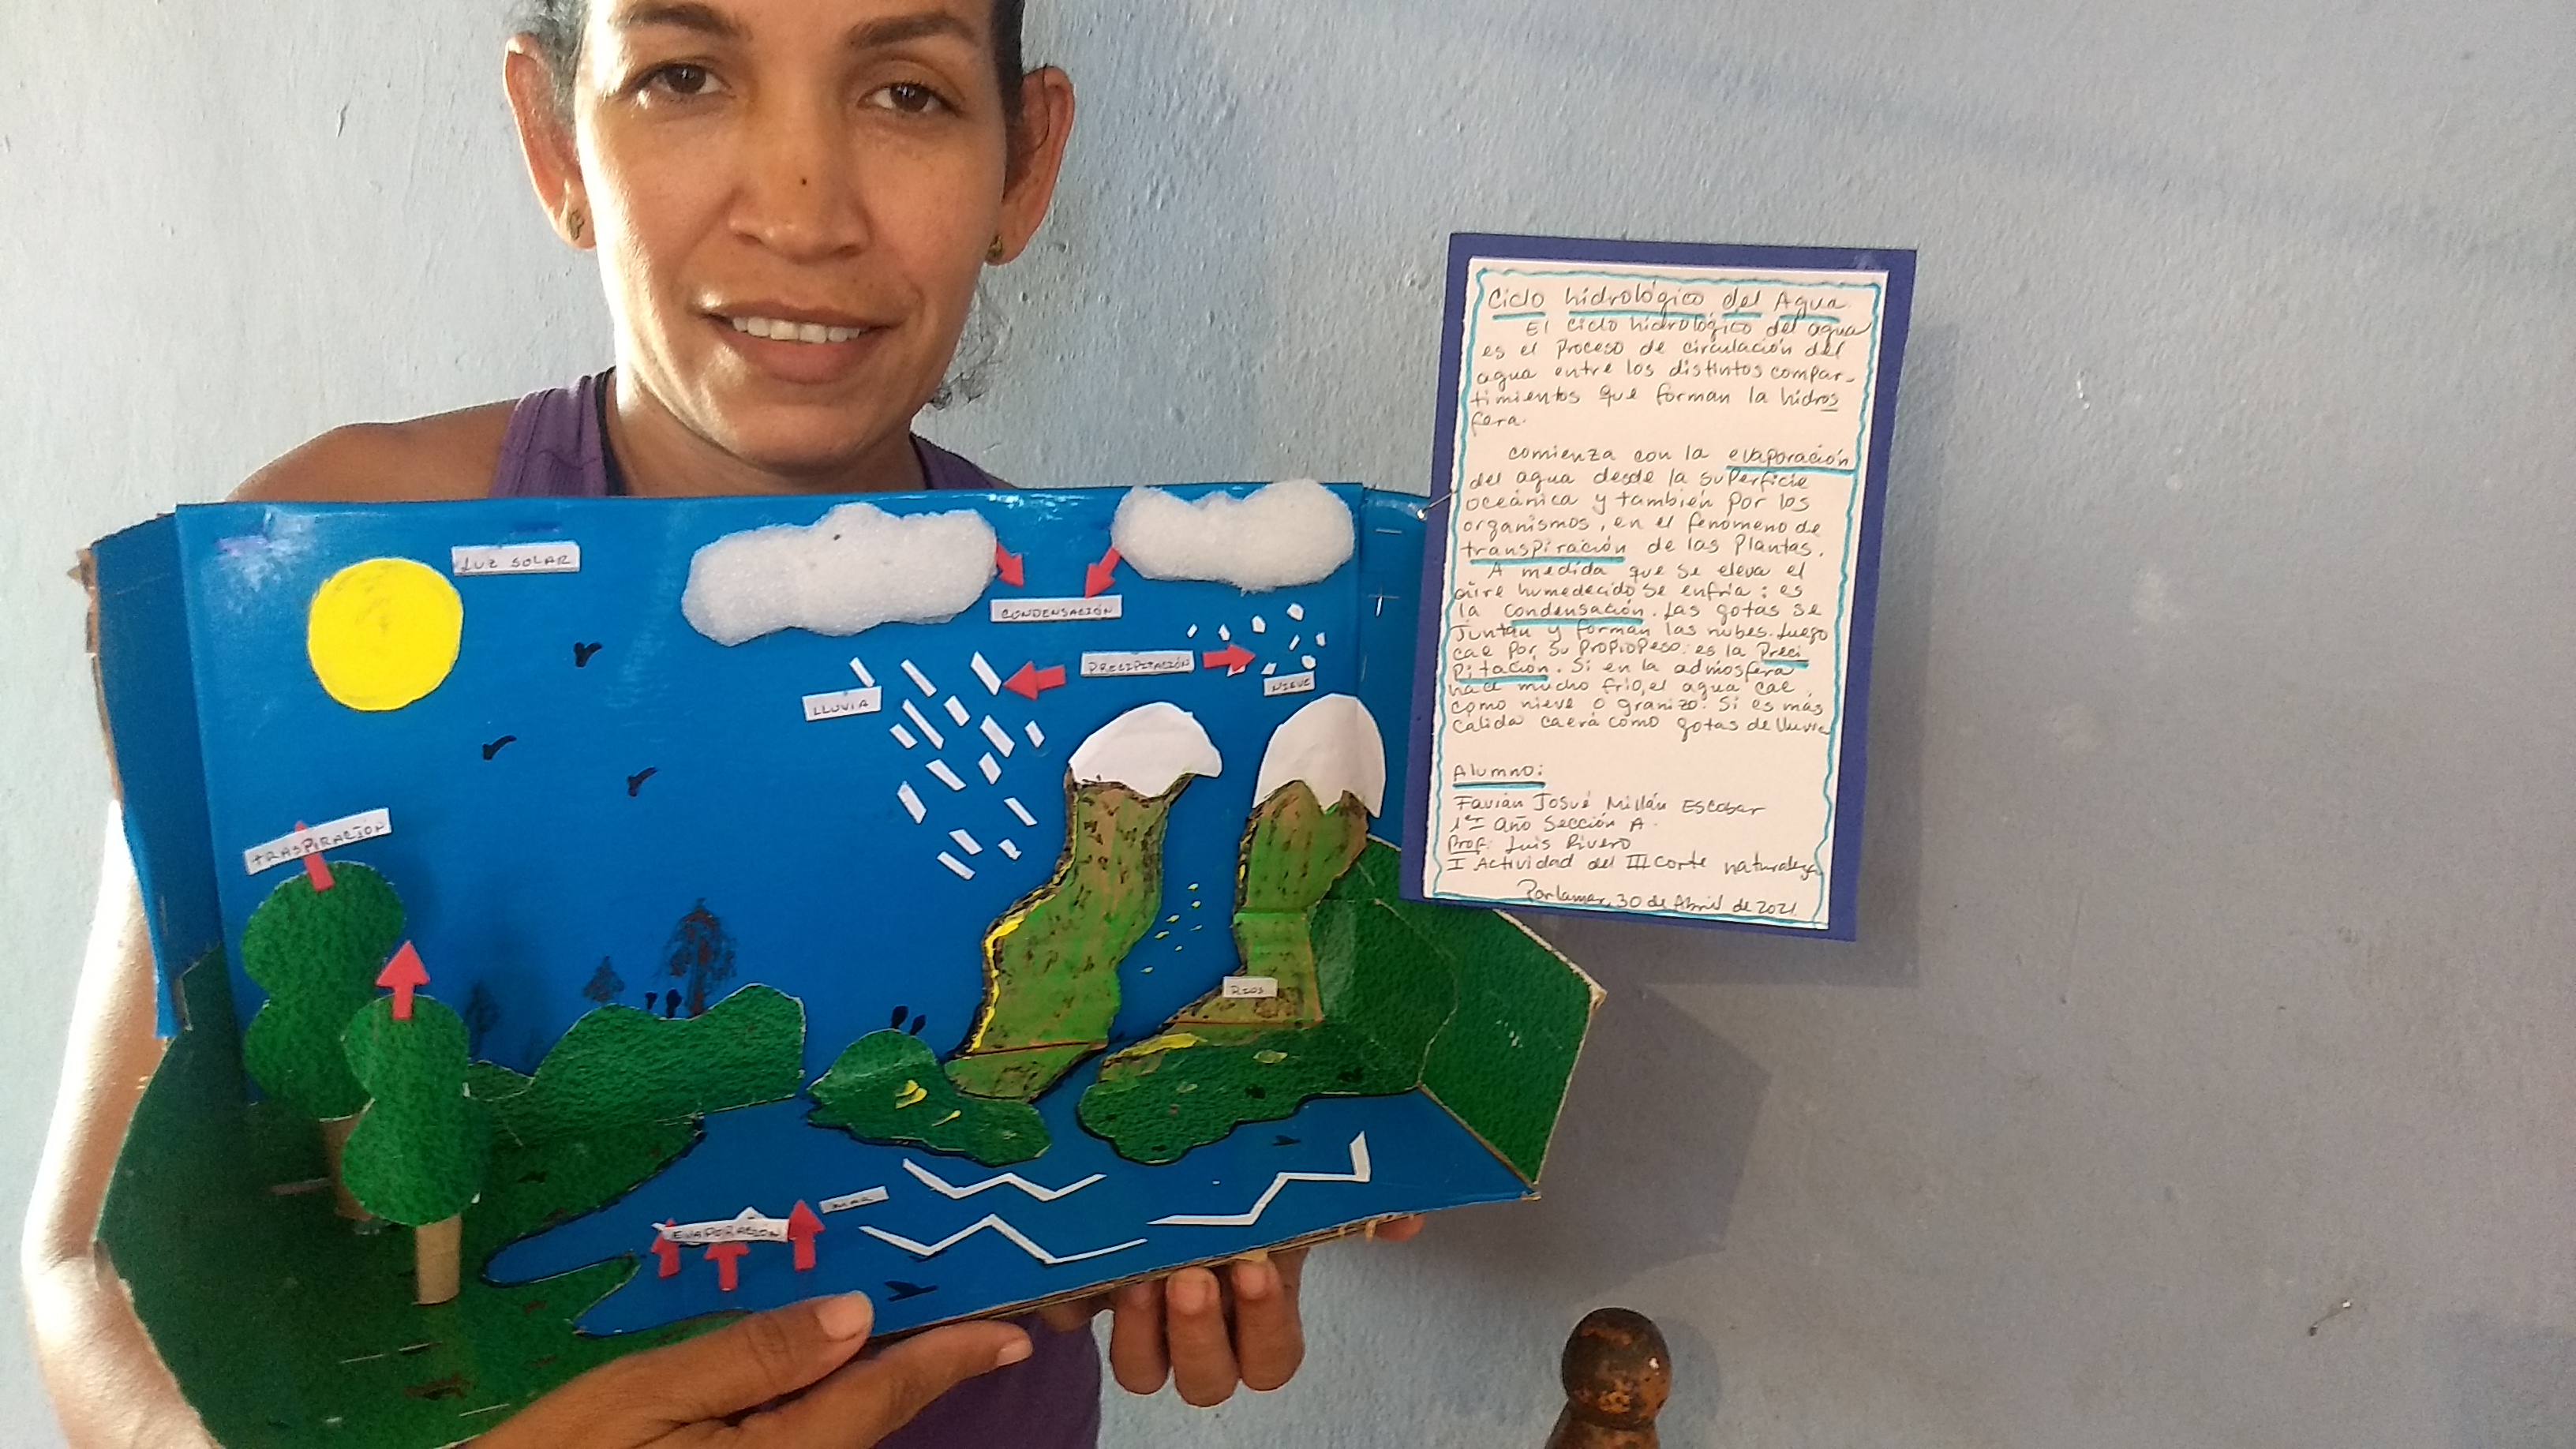 LUZ SOLAR
CONDENSACIÓN
PRECIPITACIÓN
NIEVE
LLUVIA
TRASPIRACIÓN
RIOS
MAR
EVAPORACIÓN
Ciclo hidrológico del Agua
El ciclo hidrológico del agua
es el Proceso de circulación del
agua entre los distintos compar-
timientos que forman la hidros
fera.
comienza con la evaporación
del agua desde la superficie
oceánica y también por los
organismos, en el fenómeno de
transpiración de las Plantas.
A medida que se eleva el
aire humedecido se enfría: es
la condensación. Las gotas se
Juntan y forman las nubes. Luego
cae por su propio peso: es la Preci
Pitación. Si en la admosfera
hace mucho frio, el agua cae
como nieve o granizo. Si es más
calida caerá como gotas de lluvia
Alumno:
Favián Josué Millán Escobar
1er año Sección A.
Prof. Luis Rivero
I Actividad del III Corte naturaleza
Porlamar, 30 de Abril de 2021